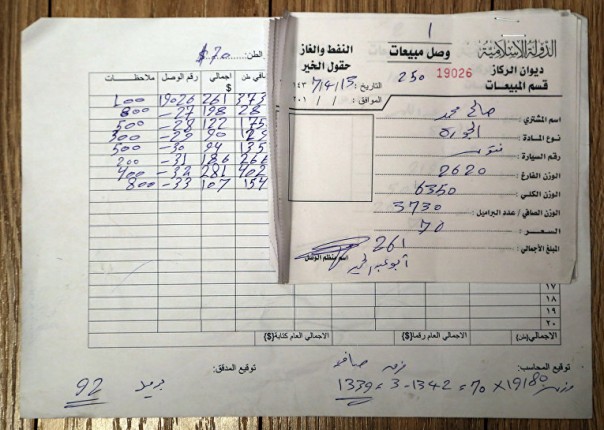 1
الدولة الإسلامية
ديوان الركاز
قسم المبيعات
وصل مبيعات
250 19026
النفط والغاز
حقول الخير
التاريخ: 15/4/١٤٣7
الموافق: / / ٢٠١
اسم المشتري: صالح محمد
نوع المادة:
رقم السيارة:
الوزن الفارغ: 2620
الوزن الكلي: 6350
الوزن الصافي / عدد البراميل: 3730
السعر: 70
المبلغ الأجمالي: 261
اسم منظم الوصل
الطن: 70 $
صافي طن اجمالي $ رقم الوصل ملاحظات
373 261 19026 100
28 198 -27 800
175 500
129 90
135 94 -30 500
266 186 -31 200
402 281 -32 400
154 107 -33 800
١٧
١٨
١٩
٢٠
الاجمالي (طن) الاجمالي العام رقماً ($) الاجمالي العام كتابة ($)
توقيع المحاسب: توقيع المدقق:
1339 = 3 - 1342 = 70 × 19180
92